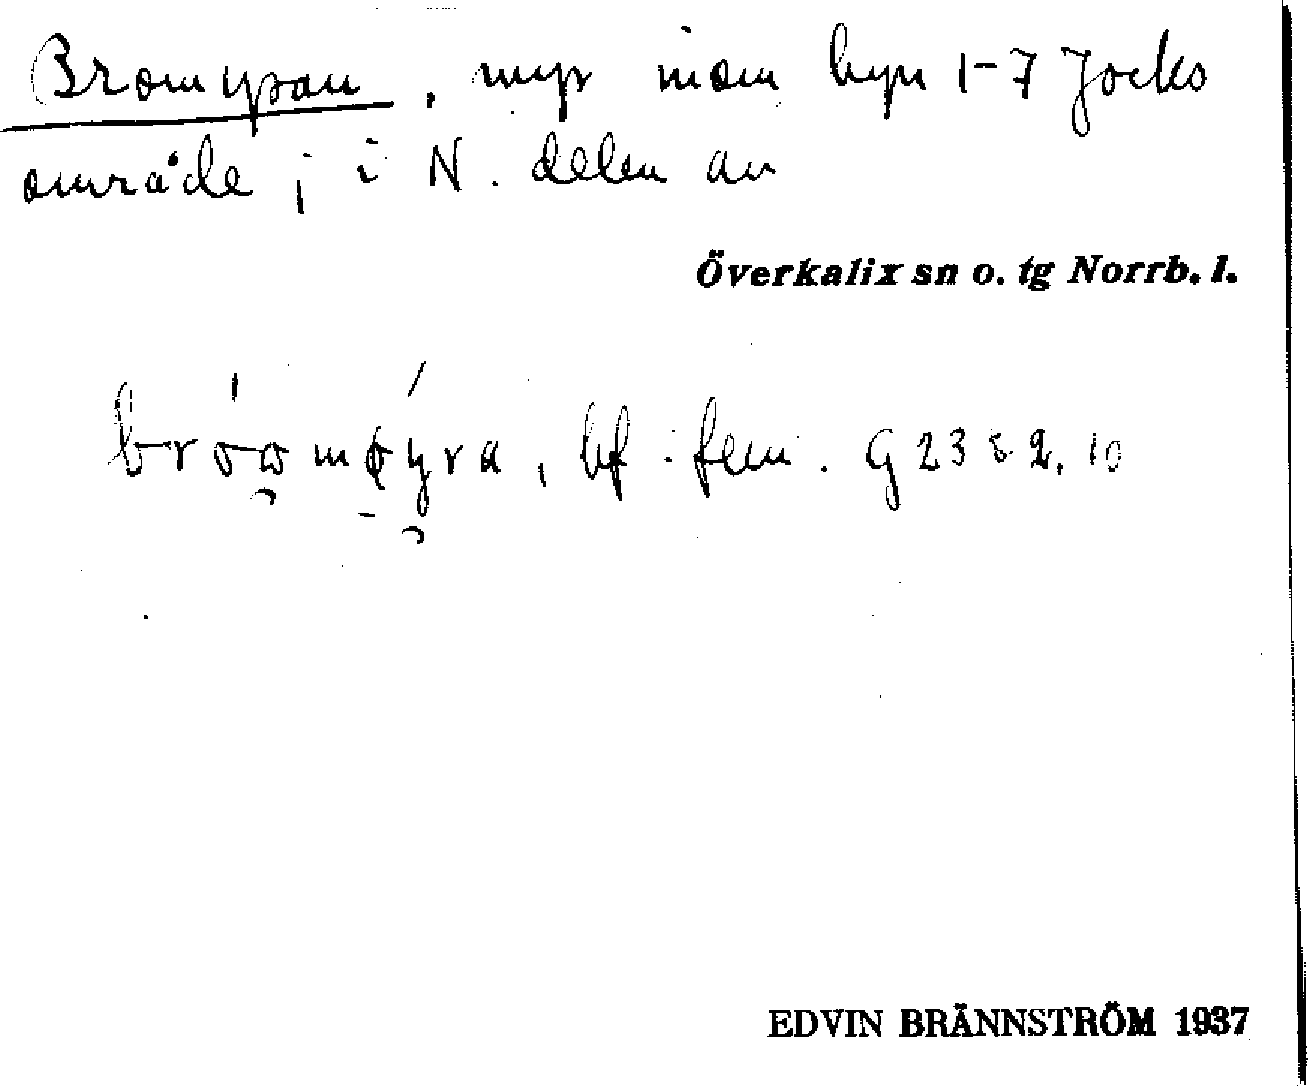 Bromyran, myr inom byn 1-7 Jocks
område ; i N. delen av
Överkalix sn o. tg Norrb. l.
bf. fem.
EDVIN BRÄNNSTRÖM 1937